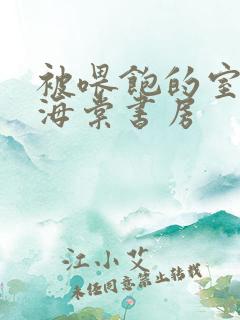 被喂饱的室
海棠书房
江小艾
未经同意禁止转载